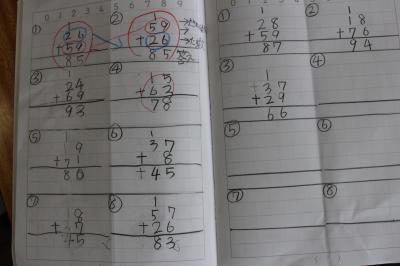 0 1 2 3 4 5 6 7 8 9
① ②
1 1
26 59
+59 +26
85 85
③ ④
1
24 15
+69 +63
93 78
⑤ ⑥
1 1
9 37
+71 +8
80 45
⑦ ⑧
1
8 57
+37 +26
45 83
① ②
1 1
28 18
+59 +76
87 94
③ ④
1
37
+29
66
⑤ ⑥
⑦ ⑧